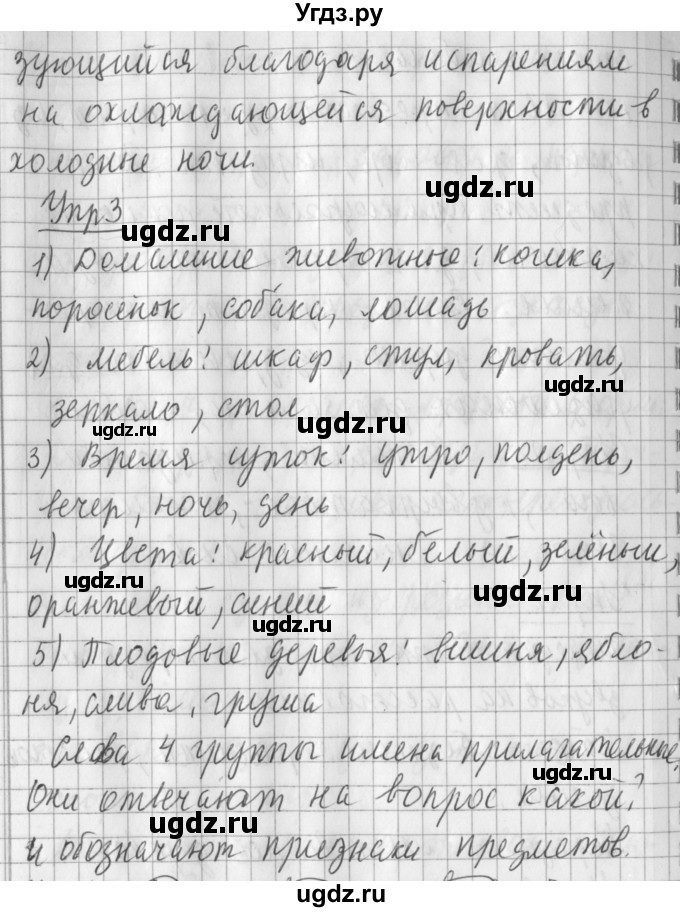 Угдз.ру
зующийся благодаря испарениям
на охлаждающейся поверхности в
холодные ночи.
ugdz.ru
Упр3
ugdz.ru
1) Домашние животные: кошка,
поросёнок, собака, лошадь
2) Мебель: шкаф, стул, кровать,
ugdz.ru
зеркало, стол
ugdz.ru ugdz.ru
3) Время суток: утро, полдень,
вечер, ночь, день
4) Цвета: красный, белый, зелёный,
ugdz.ru ugdz.ru
оранжевый, синий
ugdz.ru
5) Плодовые деревья: вишня, ябло-
ня, слива, груша
Слова 4 группы имена прилагательные.
ugdz.ru
Они отвечают на вопрос какой?
ugdz.ru
и обозначают признаки предметов.
ugdz.ru